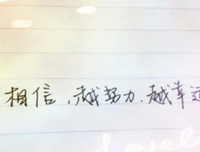 相信，越努力，越幸运